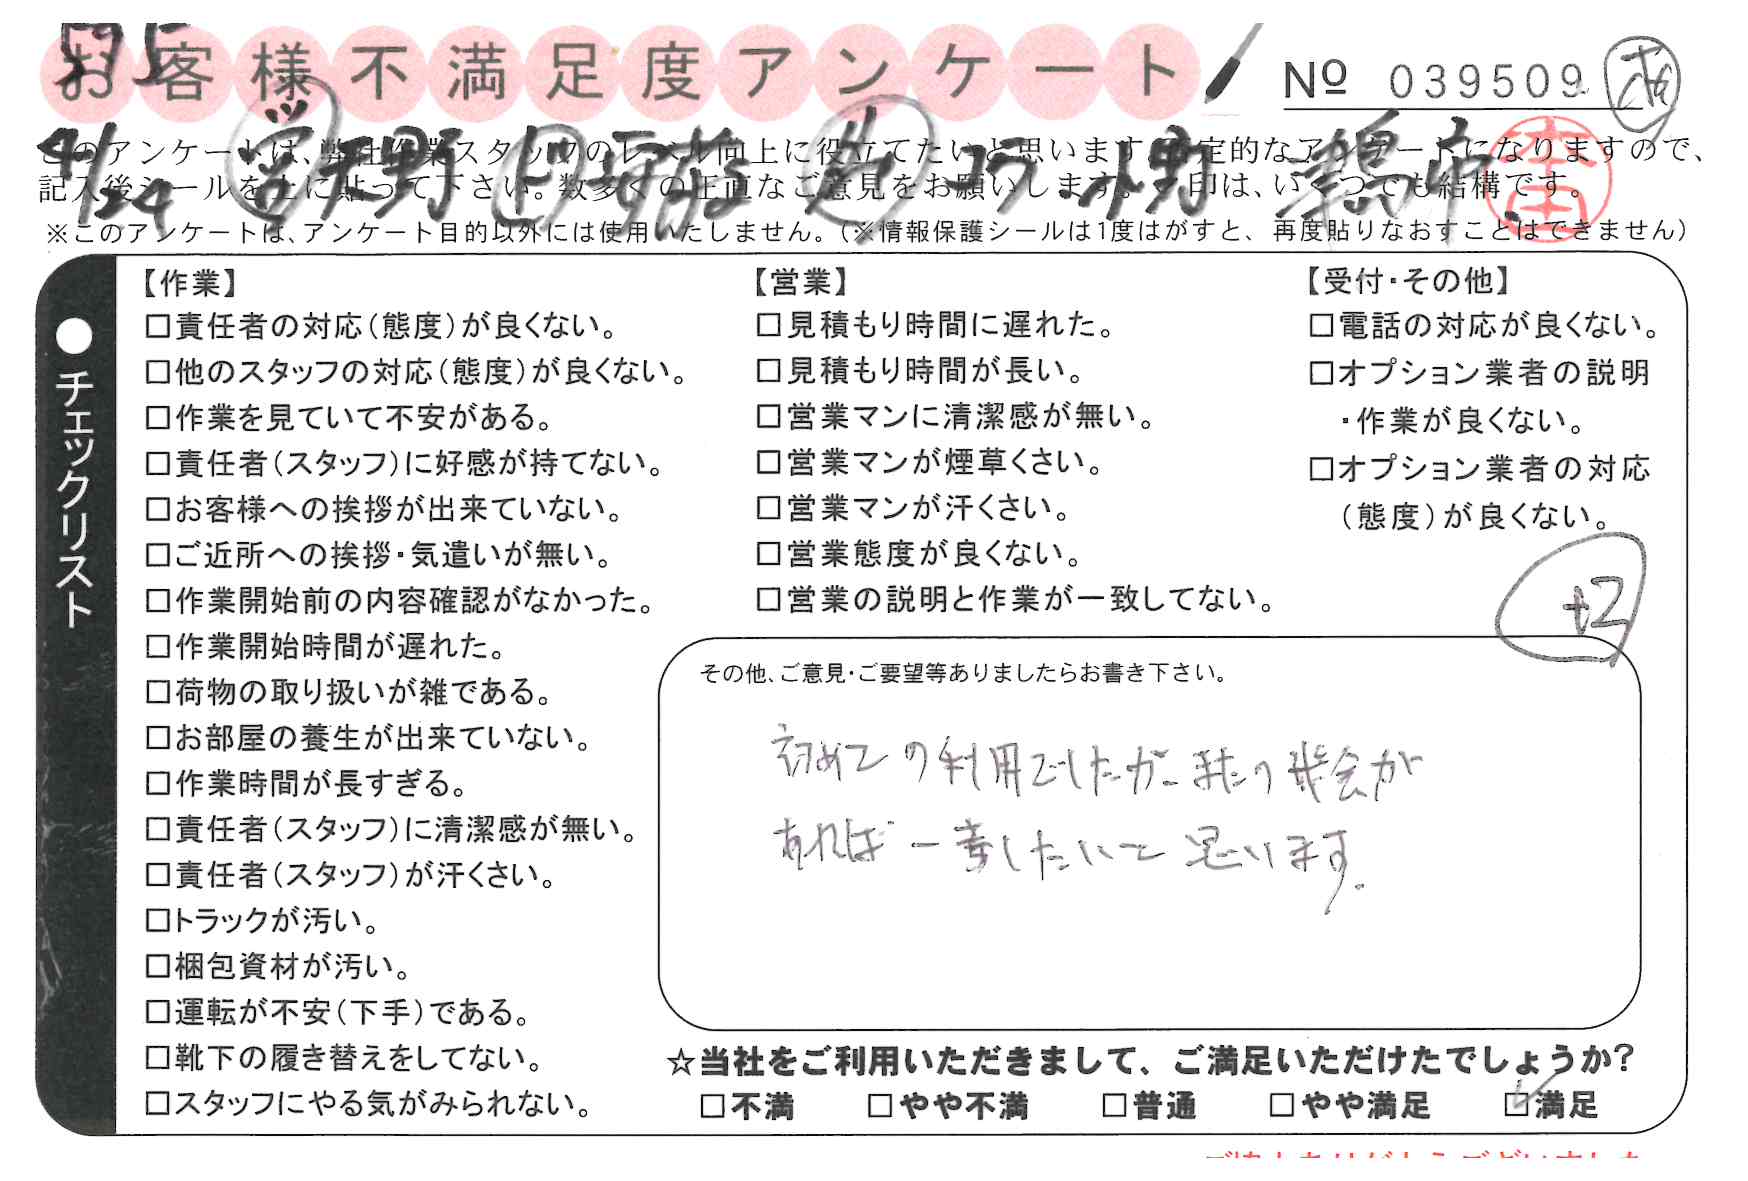 お客様不満足度アンケート
№ 039509
このアンケートは、弊社作業スタッフのレベル向上に役立てたいと思います。否定的なアンケートになりますので、
記入後シールを上に貼って下さい。数多くの正直なご意見をお願いします。✓印は、いくつでも結構です。
※このアンケートは、アンケート目的以外には使用いたしません。(※情報保護シールは1度はがすと、再度貼りなおすことはできません)
●チェックリスト
【作業】
□責任者の対応(態度)が良くない。
□他のスタッフの対応(態度)が良くない。
□作業を見ていて不安がある。
□責任者(スタッフ)に好感が持てない。
□お客様への挨拶が出来ていない。
□ご近所への挨拶・気遣いが無い。
□作業開始前の内容確認がなかった。
□作業開始時間が遅れた。
□荷物の取り扱いが雑である。
□お部屋の養生が出来ていない。
□作業時間が長すぎる。
□責任者(スタッフ)に清潔感が無い。
□責任者(スタッフ)が汗くさい。
□トラックが汚い。
□梱包資材が汚い。
□運転が不安(下手)である。
□靴下の履き替えをしてない。
□スタッフにやる気がみられない。
【営業】
□見積もり時間に遅れた。
□見積もり時間が長い。
□営業マンに清潔感が無い。
□営業マンが煙草くさい。
□営業マンが汗くさい。
□営業態度が良くない。
□営業の説明と作業が一致してない。
【受付・その他】
□電話の対応が良くない。
□オプション業者の説明
・作業が良くない。
□オプション業者の対応
(態度)が良くない。
+2
その他、ご意見・ご要望等ありましたらお書き下さい。
初めての利用でしたが、またの機会が
あれば一考したいと思います。
☆当社をご利用いただきまして、ご満足いただけたでしょうか?
□不満 □やや不満 □普通 □やや満足 ☑満足
ご協力ありがとうございました